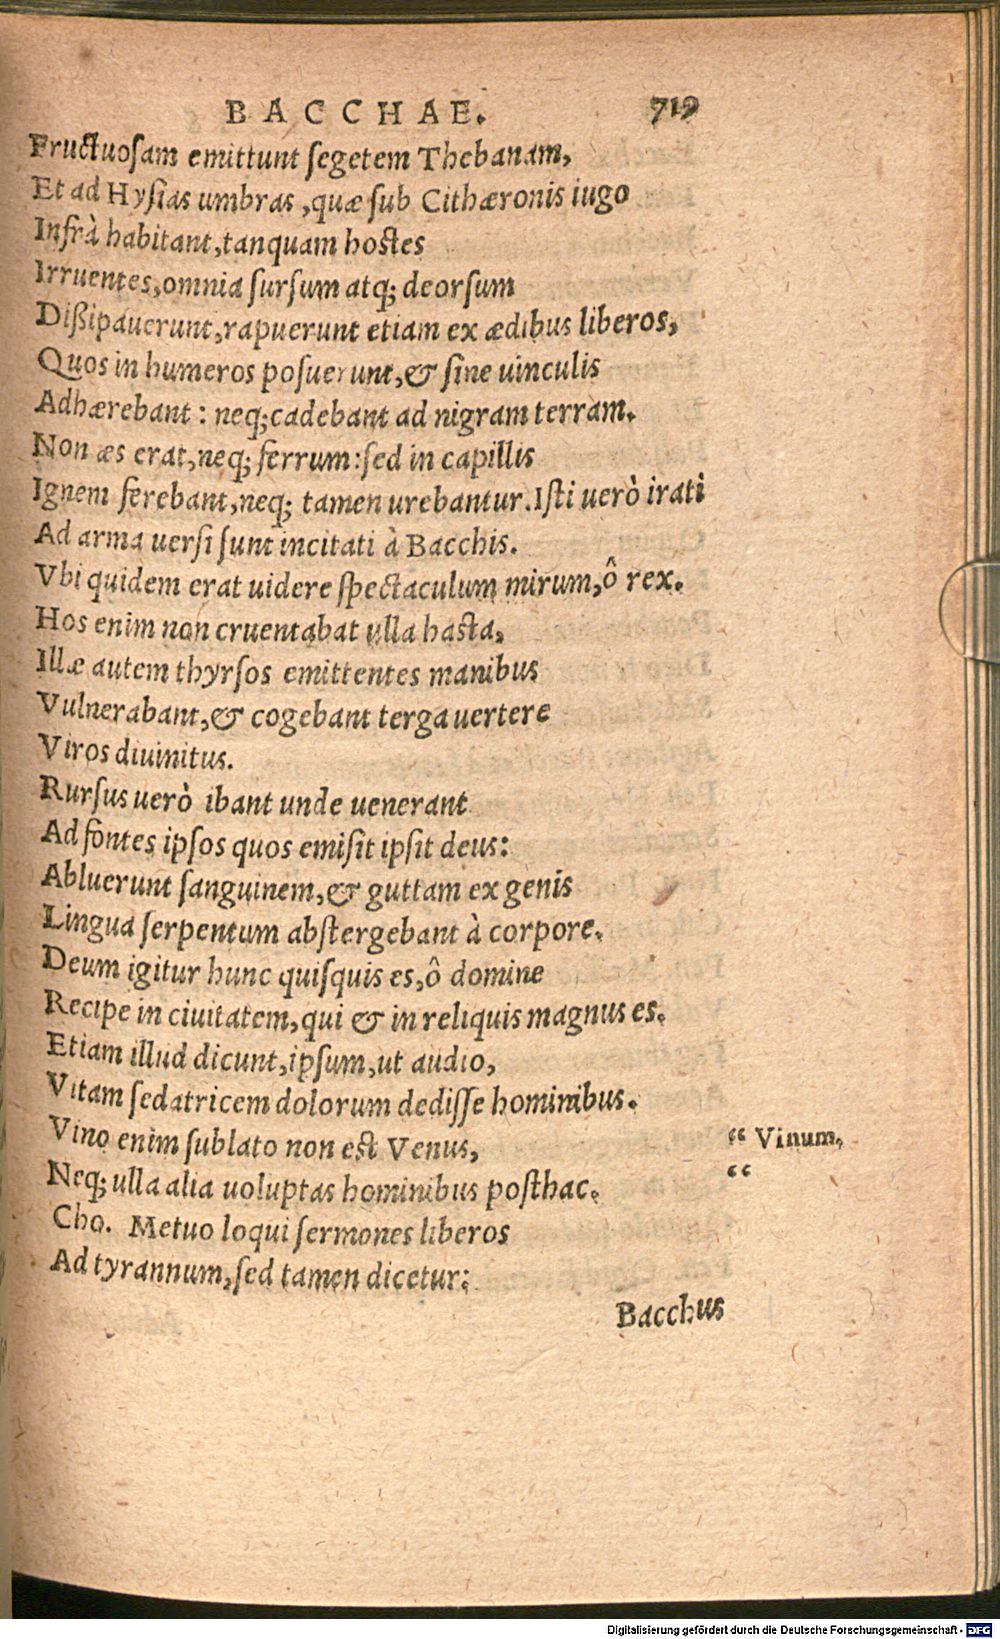 BACCHAE. 719
Fructuosam emittunt segetem Thebanam,
Et ad Hysias umbras, quæ sub Cithæronis iugo
Infrà habitant, tanquam hostes
Irruentes, omnia sursum atq; deorsum
Dißipauerunt, rapuerunt etiam ex ædibus liberos,
Quos in humeros posuerunt, & sine uinculis
Adhærebant: neq; cadebant ad nigram terram.
Non æs erat, neq; ferrum: sed in capillis
Ignem ferebant, neq; tamen urebantur. Isti uerò irati
Ad arma uersi sunt incitati à Bacchis.
Vbi quidem erat uidere spectaculum mirum, ô rex.
Hos enim non cruentabat ulla hasta,
Illæ autem thyrsos emittentes manibus
Vulnerabant, & cogebant terga uertere
Viros diuinitus.
Rursus uerò ibant unde uenerant
Ad fontes ipsos quos emisit ipsit deus:
Abluerunt sanguinem, & guttam ex genis
Lingua serpentum abstergebant à corpore.
Deum igitur hunc quisquis es, ô domine
Recipe in ciuitatem, qui & in reliquis magnus es.
Etiam illud dicunt, ipsum, ut audio,
Vitam sedatricem dolorum dedisse hominibus.
Vino enim sublato non est Venus, “ Vinum.
Neq; ulla alia uoluptas hominibus posthac. “
Cho. Metuo loqui sermones liberos
Ad tyrannum, sed tamen dicetur:
Bacchus
Digitalisierung gefördert durch die Deutsche Forschungsgemeinschaft - DFG